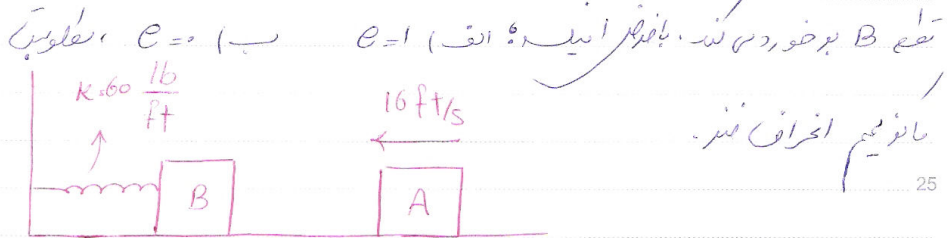 قطعه B برخورد می کند. بافرض اینکه: الف) e=1 ب) e=0 ، مطلوبست
ماکزیمم انحراف فنر.
K=60 lb/ft
16 ft/s
B
A
25